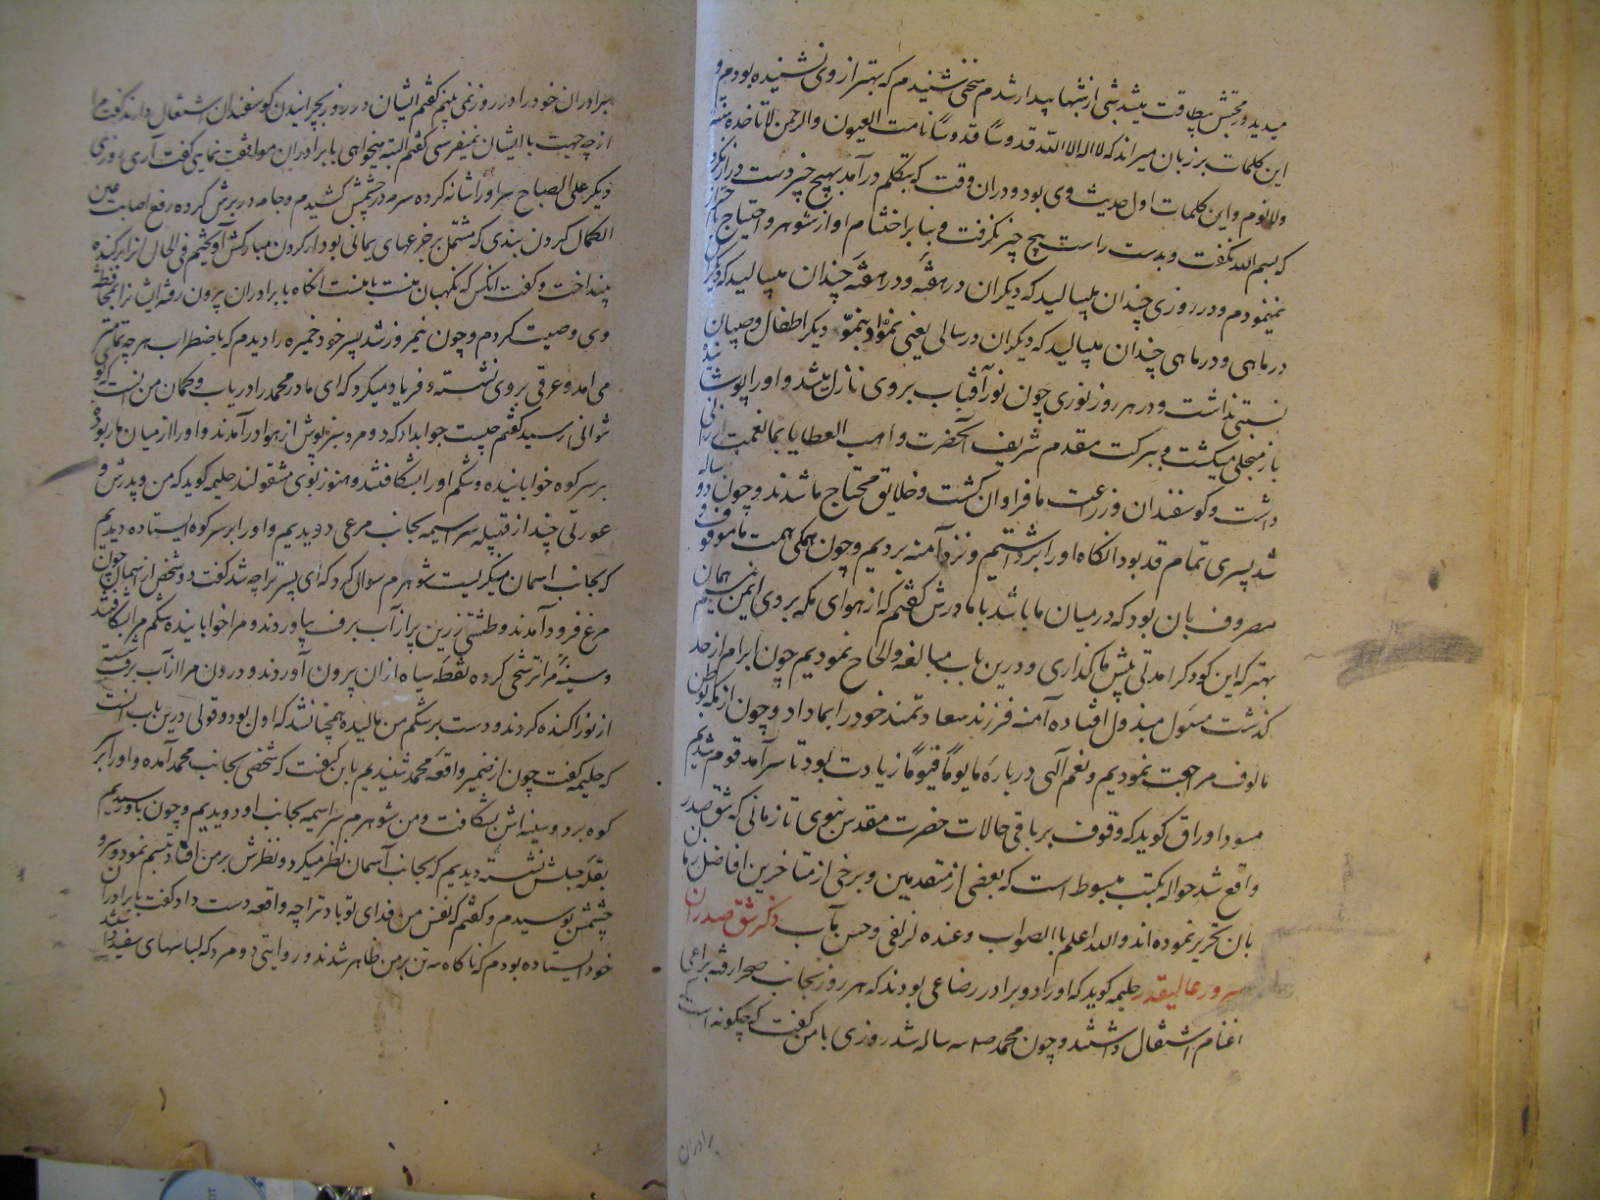 میدید و محبتش بیطاقت میشد شبی از شبها بیدار شدم سخنی شنیدم که بهتر از وی نشنیده بودم و
این کلمات بر زبان میراند که لا اله الا الله قدوسًا قدوسًا نامت العیون والرحمن لا تاخذه سنة
ولا نوم و این کلمات اول حدیث وی بود و دران وقت که بتکلم درآمد بهیچ چیز دست دراز نکرد
که بسم الله نگفت و بدست راست هیچ چیز نگرفت و بنابر احتشام او از شوهر و احتیاج احتراز
مینمودم و در روزی چندان میبالید که دیگران در هفته و در هفته چندان میبالید که دیگران
در ماهی و در ماهی چندان میبالید که دیگران در سالی یعنی نمو او بنمو دیگر اطفال و صبیان
نسبتی نداشت و در هر روز نوری چون نور آفتاب بر وی نازل میشد و او را پوشانیده
باز منجلی میگشت و ببرکت مقدم شریف آنحضرت واهب العطایا بما نعمت ارزانی
داشت و گوسفندان و زراعت ما فراوان گشت و خلایق محتاج ما شدند و چون دو ساله
شد پسری تمام قد بود انگاه او را برداشتیم و نزد آمنه بردیم و چون همگی همت ما موقوف و
مصروف بان بود که در میان ما باشد با مادرش گفتیم که از هوای مکه بر وی ایمن نیستیم همان
بهتر که این کودک را مدتی پیش ما گذاری و درین باب مبالغه و الحاح نمودیم چون ابرام از حد
گذشت مسئول مبذول افتاده آمنه فرزند سعادتمند خود را بما داد و چون از مکه بوطن
مالوف مراجعت نمودیم و نعم آلهی درباره ما یومًا فیومًا زیادت بود تا سرآمد قوم شدیم
مسود اوراق گوید که وقوف بر باقی حالات حضرت مقدس نبوی تا زمانی که شق صدر
واقع شد حواله بکتب مبسوط است که بعضی از متقدمین و برخی از متاخرین افاضل زمان
بان تحریر نموده اند والله اعلم بالصواب وعنده لزلفی وحسن مآب ذکر شق صدر آن
سرور عالیقدر حلیمه گوید که او را دو برادر رضاعی بودند که هر روز بجانب صحرا رفته براعی
اغنام اشتغال داشتند و چون محمد صم سه ساله شد روزی با من گفت که چگونه است
برادران
برادران خود را در روز نمی بینم گفتم ایشان در روز بچرانیدن گوسفندان اشتغال دارند گفت مرا
از چه جهت با ایشان نمیفرستی گفتم البته میخواهی با برادران موافقت نمای گفت آری روزی
دیگر علی الصباح سر او را شانه کرده سرمه در چشمش کشیدم و جامه در برش کرده رفع اصابت عین
الکمال گردن بندی که مشتمل بر جزعهای یمانی بود از گردن مبارکش آویختیم فی الحال انرا برکنده
بینداخت و گفت انکس که نگهبان منست با منست انگاه با برادران بیرون رفته ایشانرا بمحافظة
وی وصیت کردم و چون نیمروز شد پسر خود ضمیره را دیدم که باضطراب هرچه تمامتر
می امد و عرقی بر وی نشسته و فریاد میکرد که ای مادر محمد را دریاب و گمان من انست که نو
توانی رسید گفتم چیست جواب داد که دو مرد سبزپوش از هوا درآمدند و او را از میان ما ربوده
بر سر کوه خوابانیده و شکم او را بشکافتند و هنوز بوی مشغولند حلیمه گوید که من و پدرش و
عورتی چند از قبیله سراسیمه بجانب مرعی دویدیم و او را بر سر کوه ایستاده دیدیم
که بجانب اسمان مینگریست شوهرم سوال کرد که ای پسر ترا چه شد گفت دو شخص از اسمان چون
مرغ فرود آمدند و طشتی زرین پر از آب برف بیاوردند و مرا خوابانیده شکم مرا بشکافتند
و سینهٔ مرا ترشحی کرده نقطه سیاه ازان بیرون آوردند و درون مرا از آب برف شسته
از نور اکنده کردند و دست بر شکم من مالیده همچنان شد که اول بود و قولی درین باب انست
که حلیمه گفت چون از ضمیر واقعه محمد شنیدیم باین کیفیت که شخصی بجانب محمد آمده و او را بر
کوه برد و سینه اش بشکافت و من و شوهرم سراسیمه بجانب او دویدیم و چون باو رسیدیم
بقله جبلش نشسته دیدیم که بجانب آسمان نظر میکرد و نظرش بر من افتاد تبسم نمود و سر و
چشمش بوسیدم و گفتم که نفس من فدای تو باد ترا چه واقعه دست داد گفت با برادران
خود ایستاده بودم که ناگاه سه تن بر من ظاهر شدند و روایتی دو مرد که لباسهای سفید داشتند